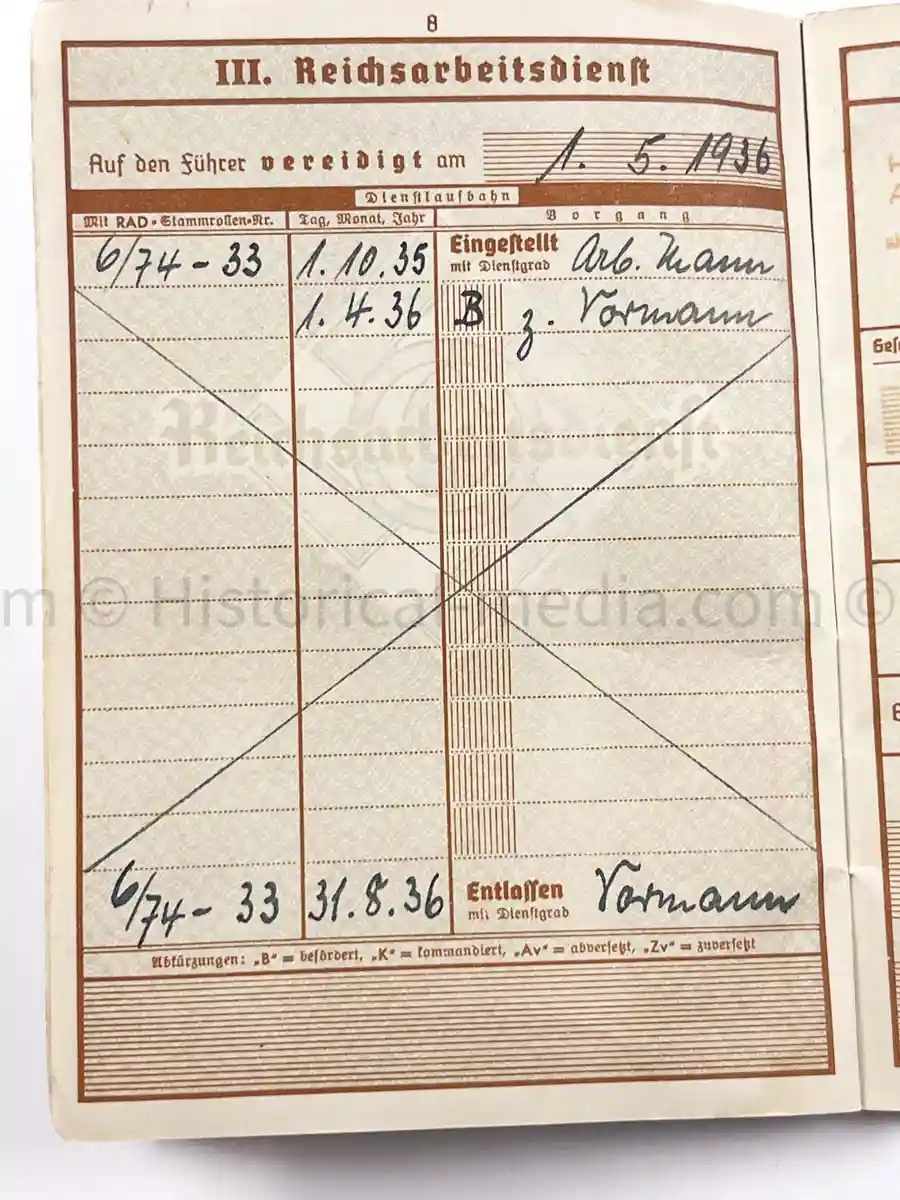 8
III. Reichsarbeitsdienst
Auf den Führer vereidigt am 1. 5. 1936
Dienstlaufbahn
Mit RAD-Stammrollen-Nr. Tag, Monat, Jahr Vorgang
6/74 - 33 1. 10. 35 Eingestellt mit Dienstgrad Arb. Mann
1. 4. 36 B z. Vormann
Reichsarbeitsdienst
m © Historical-media.com ©
6/74 - 33 31. 8. 36 Entlassen mit Dienstgrad Vormann
Abkürzungen: „B" = befördert, „K" = kommandiert, „Av" = abversetzt, „Zv" = zuversetzt